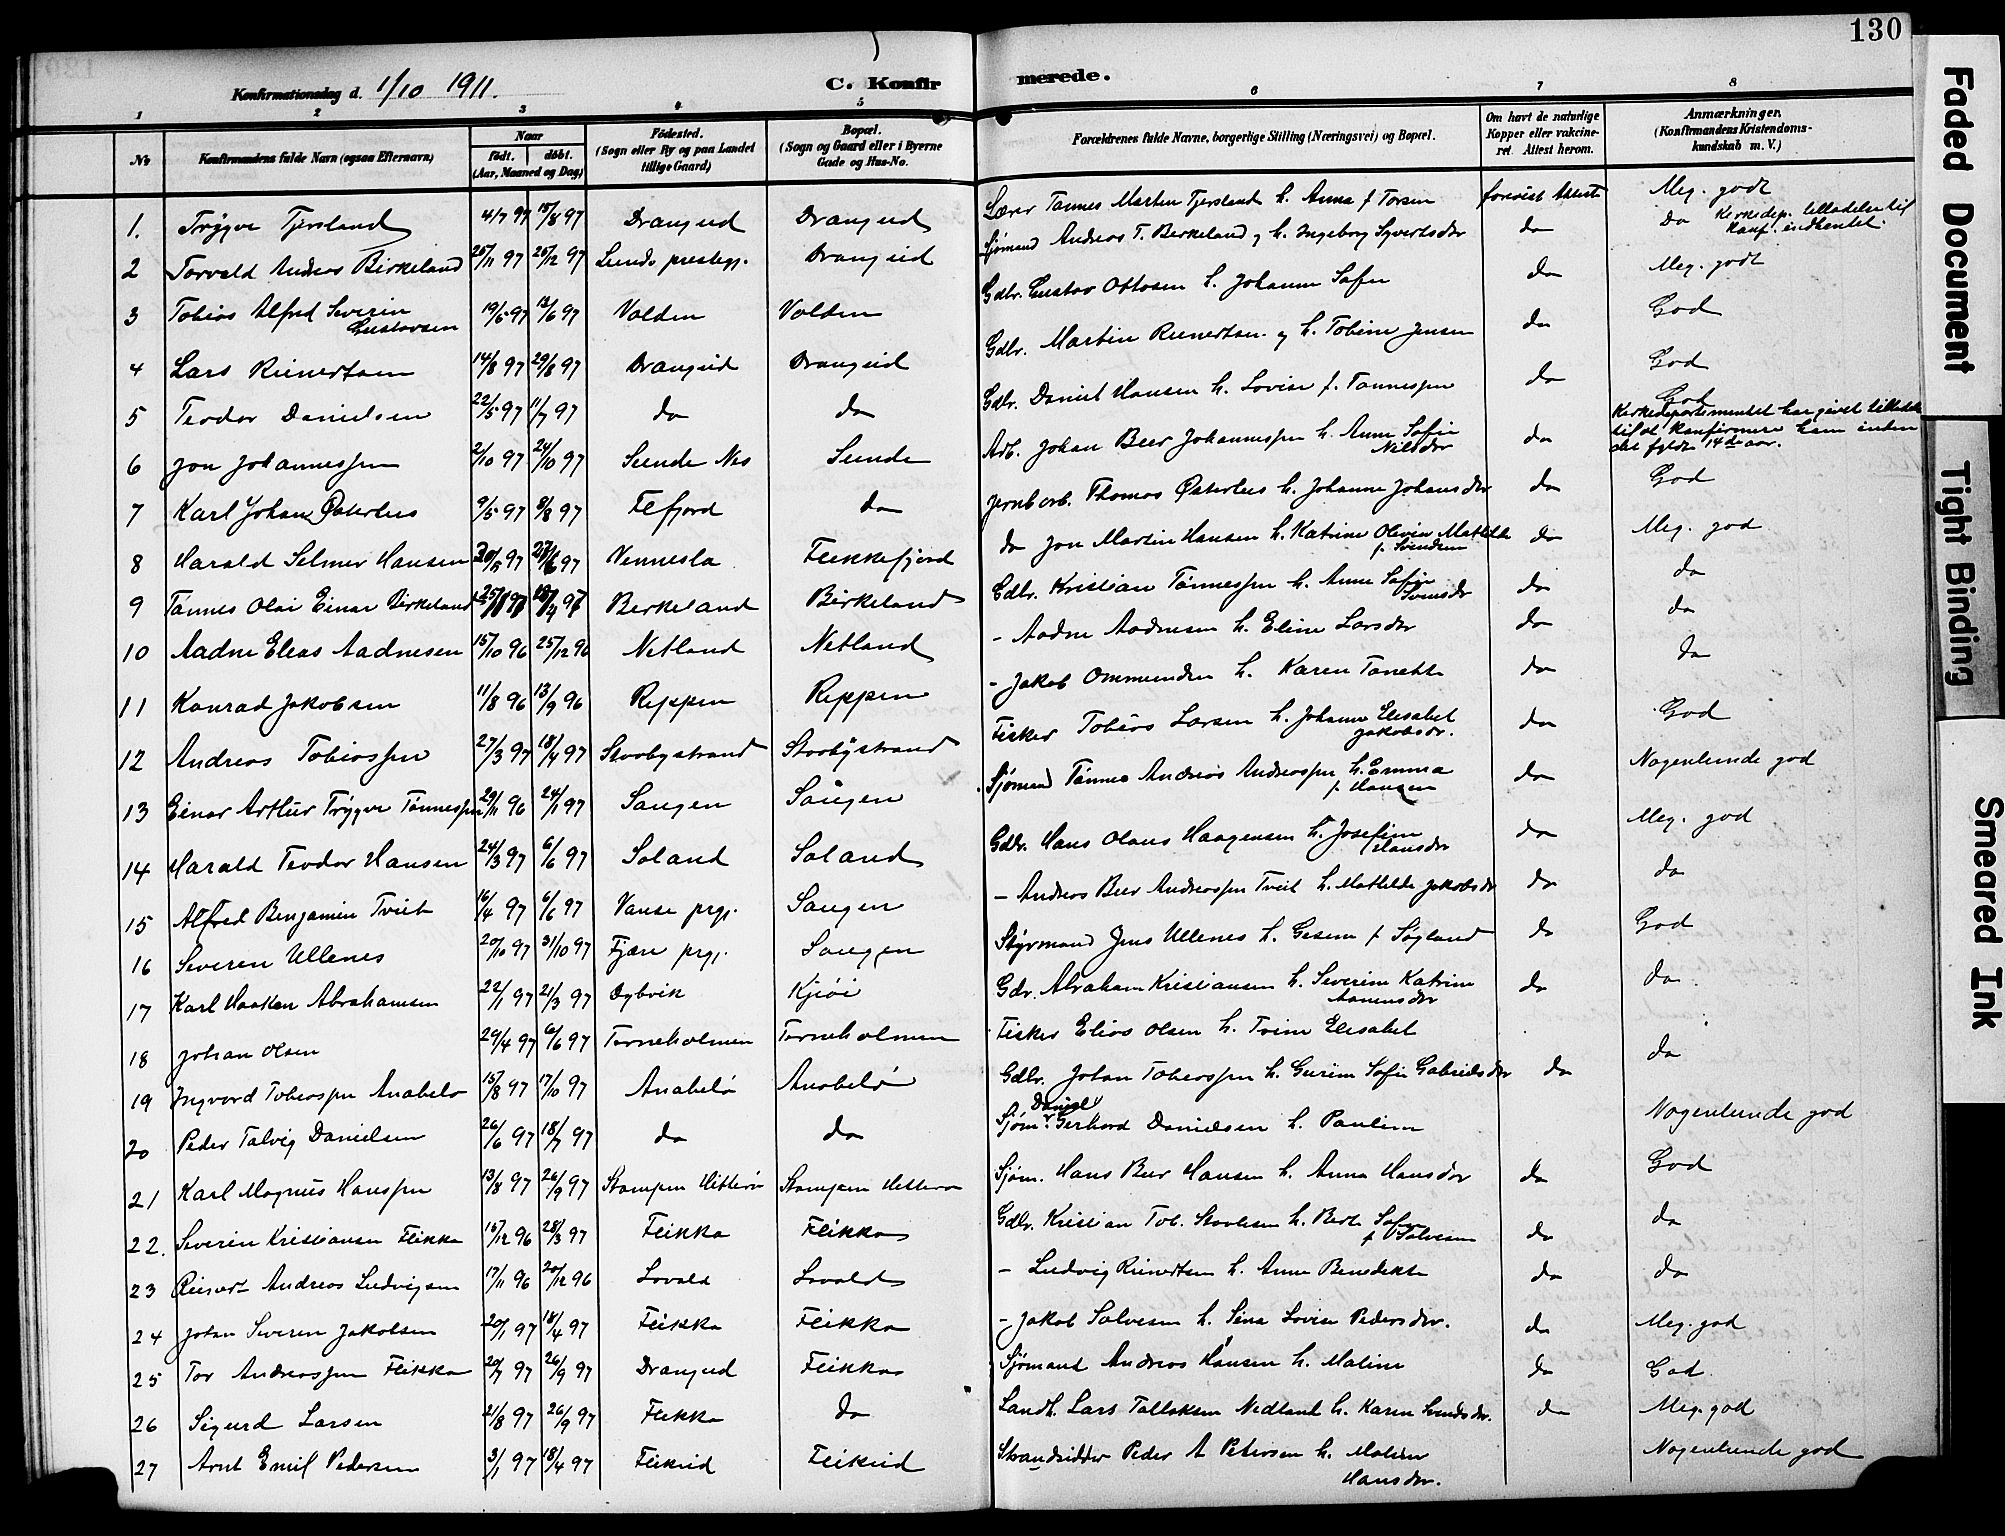 130
Konfirmationsdag d. 1/10 1911.
C. Konfir merede.
1 2 3 4 5 6 7 8
No
Konfirmandens fulde Navn (ogsaa Efternavn)
Naar
født. døbt.
(Aar, Maaned og Dag)
Fødested.
(Sogn eller By og paa Landet
tillige Gaard)
Bopæl.
(Sogn og Gaard eller i Byerne
Gade og Hus-No.
Forældrenes fulde Navne, borgerlige Stilling (Næringsvei) og Bopæl.
Om havt de naturlige
Kopper eller vakcine-
ret. Attest herom.
Anmærkninger.
(Konfirmandens Kristendoms-
kundskab m. V.)
1. Trygve Tjersland 4/7 97 15/8 97 Drangeid Drangeid Lærer Tønnes Martin Tjersland h. Anna f. Torsen forevist Attest Meg. godt
2 Torvald Andreas Birkeland 25/11 97 26/12 97 Lunds prestegj. Drangeid Sjømand Andreas T. Birkeland og h. Ingeborg Syvertsdtr do do Kirkedep. tilladelse til
Konf. indhentet.
3 Tobias Alfred Severin
Gustavsen 19/5 97 13/6 97 Volden Volden Gdbr. Gustav Ottosen h. Johanne Sofie do Meg. godt
4 Lars Reinertsen 14/8 97 29/8 97 Drangeid Drangeid Gdbr. Martin Reinertsen og h. Tobine Jensen do God
5 Teodor Danielsen 22/5 97 11/7 97 do do Gdbr. Daniel Hansen h. Lovise f. Tønnessen do God
6 Jon Johannessen 2/10 97 24/10 97 Sunde Nes Sunde Arb. Johan Beer Johannessen h. Anne Sofie
Nilsdtr do God
Kirkedepartementet har givet tilladelse
til at konfirmere ham inden
det fyldte 14de aar.
7 Karl Johan Østerhus 9/5 97 8/8 97 Fefjord do Jernbarb. Thomas Østerhus h. Johanne Johansdtr do God
8 Harald Selmer Hansen 30/5 97 27/6 97 Vennesla Flekkefjord do Jon Martin Hansen h. Katrine Olivia Matilde
f. Svendsen do Meg. god
9 Tønnes Olai Einar Birkeland Birkeland Birkeland Gdbr. Kristian Tønnessen h. Anne Sofie
Svensdtr do do
10 Aadne Elias Aadnesen 15/10 96 25/12 96 Netland Netland - Aadne Aadnesen h. Eline Larsdtr do do
11 Konrad Jakobsen 11/8 96 13/9 96 Reppen Reppen - Jakob Ommundsen h. Karen Tonette do do
12 Andreas Tobiassen 27/3 97 18/4 97 Stoobystrand Stoobystrand Fisker Tobias Larsen h. Johanne Elisabet
Jakobsdr. do God
13 Einar Arthur Trygve Tønnessen 29/11 96 24/1 97 Saugen Saugen Sjømand Tønnes Andreas Andreassen h. Emma
f. Hansen do Nogenlunde god
14 Harald Teodor Hansen 24/3 97 6/6 97 Soland Soland Gdbr. Hans Olaus Haagensen h. Josefine
Hansdtr do Meg. god
15 Alfred Benjamin Tveit 16/4 97 6/6 97 Vanse prgj. Saugen - Andreas Beer Andreassen Tveit h. Mathilde Jakobsdr do do
16 Severin Ullenes 20/10 97 31/10 97 Fjære prgj. Saugen Styrmand Jens Ullenes h. Gesine f. Søyland do God
17 Karl Haakon Abrahamsen 22/1 97 21/3 97 Dybvik Kjøöi Gdr. Abraham Kristiansen h. Severine Katrine
do do
18 Johan Olsen 29/4 97 6/6 97 Torneholmen Torneholmen Fisker Elias Olsen h. Trine Elisabet
19 Ingvard Tobiassen Anabelø 15/8 97 17/10 97 Anabelø Anabelø Gdbr. Johan Tobiassen h. Gurine Sofie Gabrielsdtr do do
20 Peder Talvig Danielsen 26/6 97 18/7 97 do do Sjøm. Daniel Gerhard Danielsen h. Pauline Nogenlunde god
21 Karl Magnus Hanssen 13/8 97 26/9 97 Stampen Hitterø Stampen Hitterø Sjøm. Hans Beer Hansen h. Anna Hansdtr do God
22. Severin Kristiansen Flikka 15/12 96 28/3 97 Flikka Flikka Gdbr. Kristian Tob. h. Berte Sofie
f. Salvesen do do
23 Reinert Andreas Ludvigsen 17/11 96 20/12 96 Lovald Lovald - Ludvig Reinertsen h. Anne Benedikte do do
24 Johan Severin Jakobsen 20/1 97 18/4 97 Flikka Flikka - Jakob Salvesen h. Sina Lovise Pedersdtr. do Meg. god
25 Tor Andreassen Flikka 20/7 97 26/9 97 Drangeid Flikka Sjømand Andreas Hansen h. Maline do God
26 Sigurd Larsen 21/8 97 26/9 97 Flikka do Landh. Lars Tallaksen Nedland h. Karen Svendsdr. do Meg. god
27 Arnt Emil Pedersen 3/1 97 18/4 97 Flikeid Flikeid Strandsidder Peder A Petersen h. Maline
Hansdtr. Nogenlunde god
Faded Document
Tight Binding
Smeared Ink